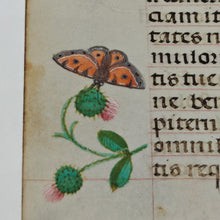 ciam it
tates n
mulor
tis tue
ne: be
pitern
omnib
tis req